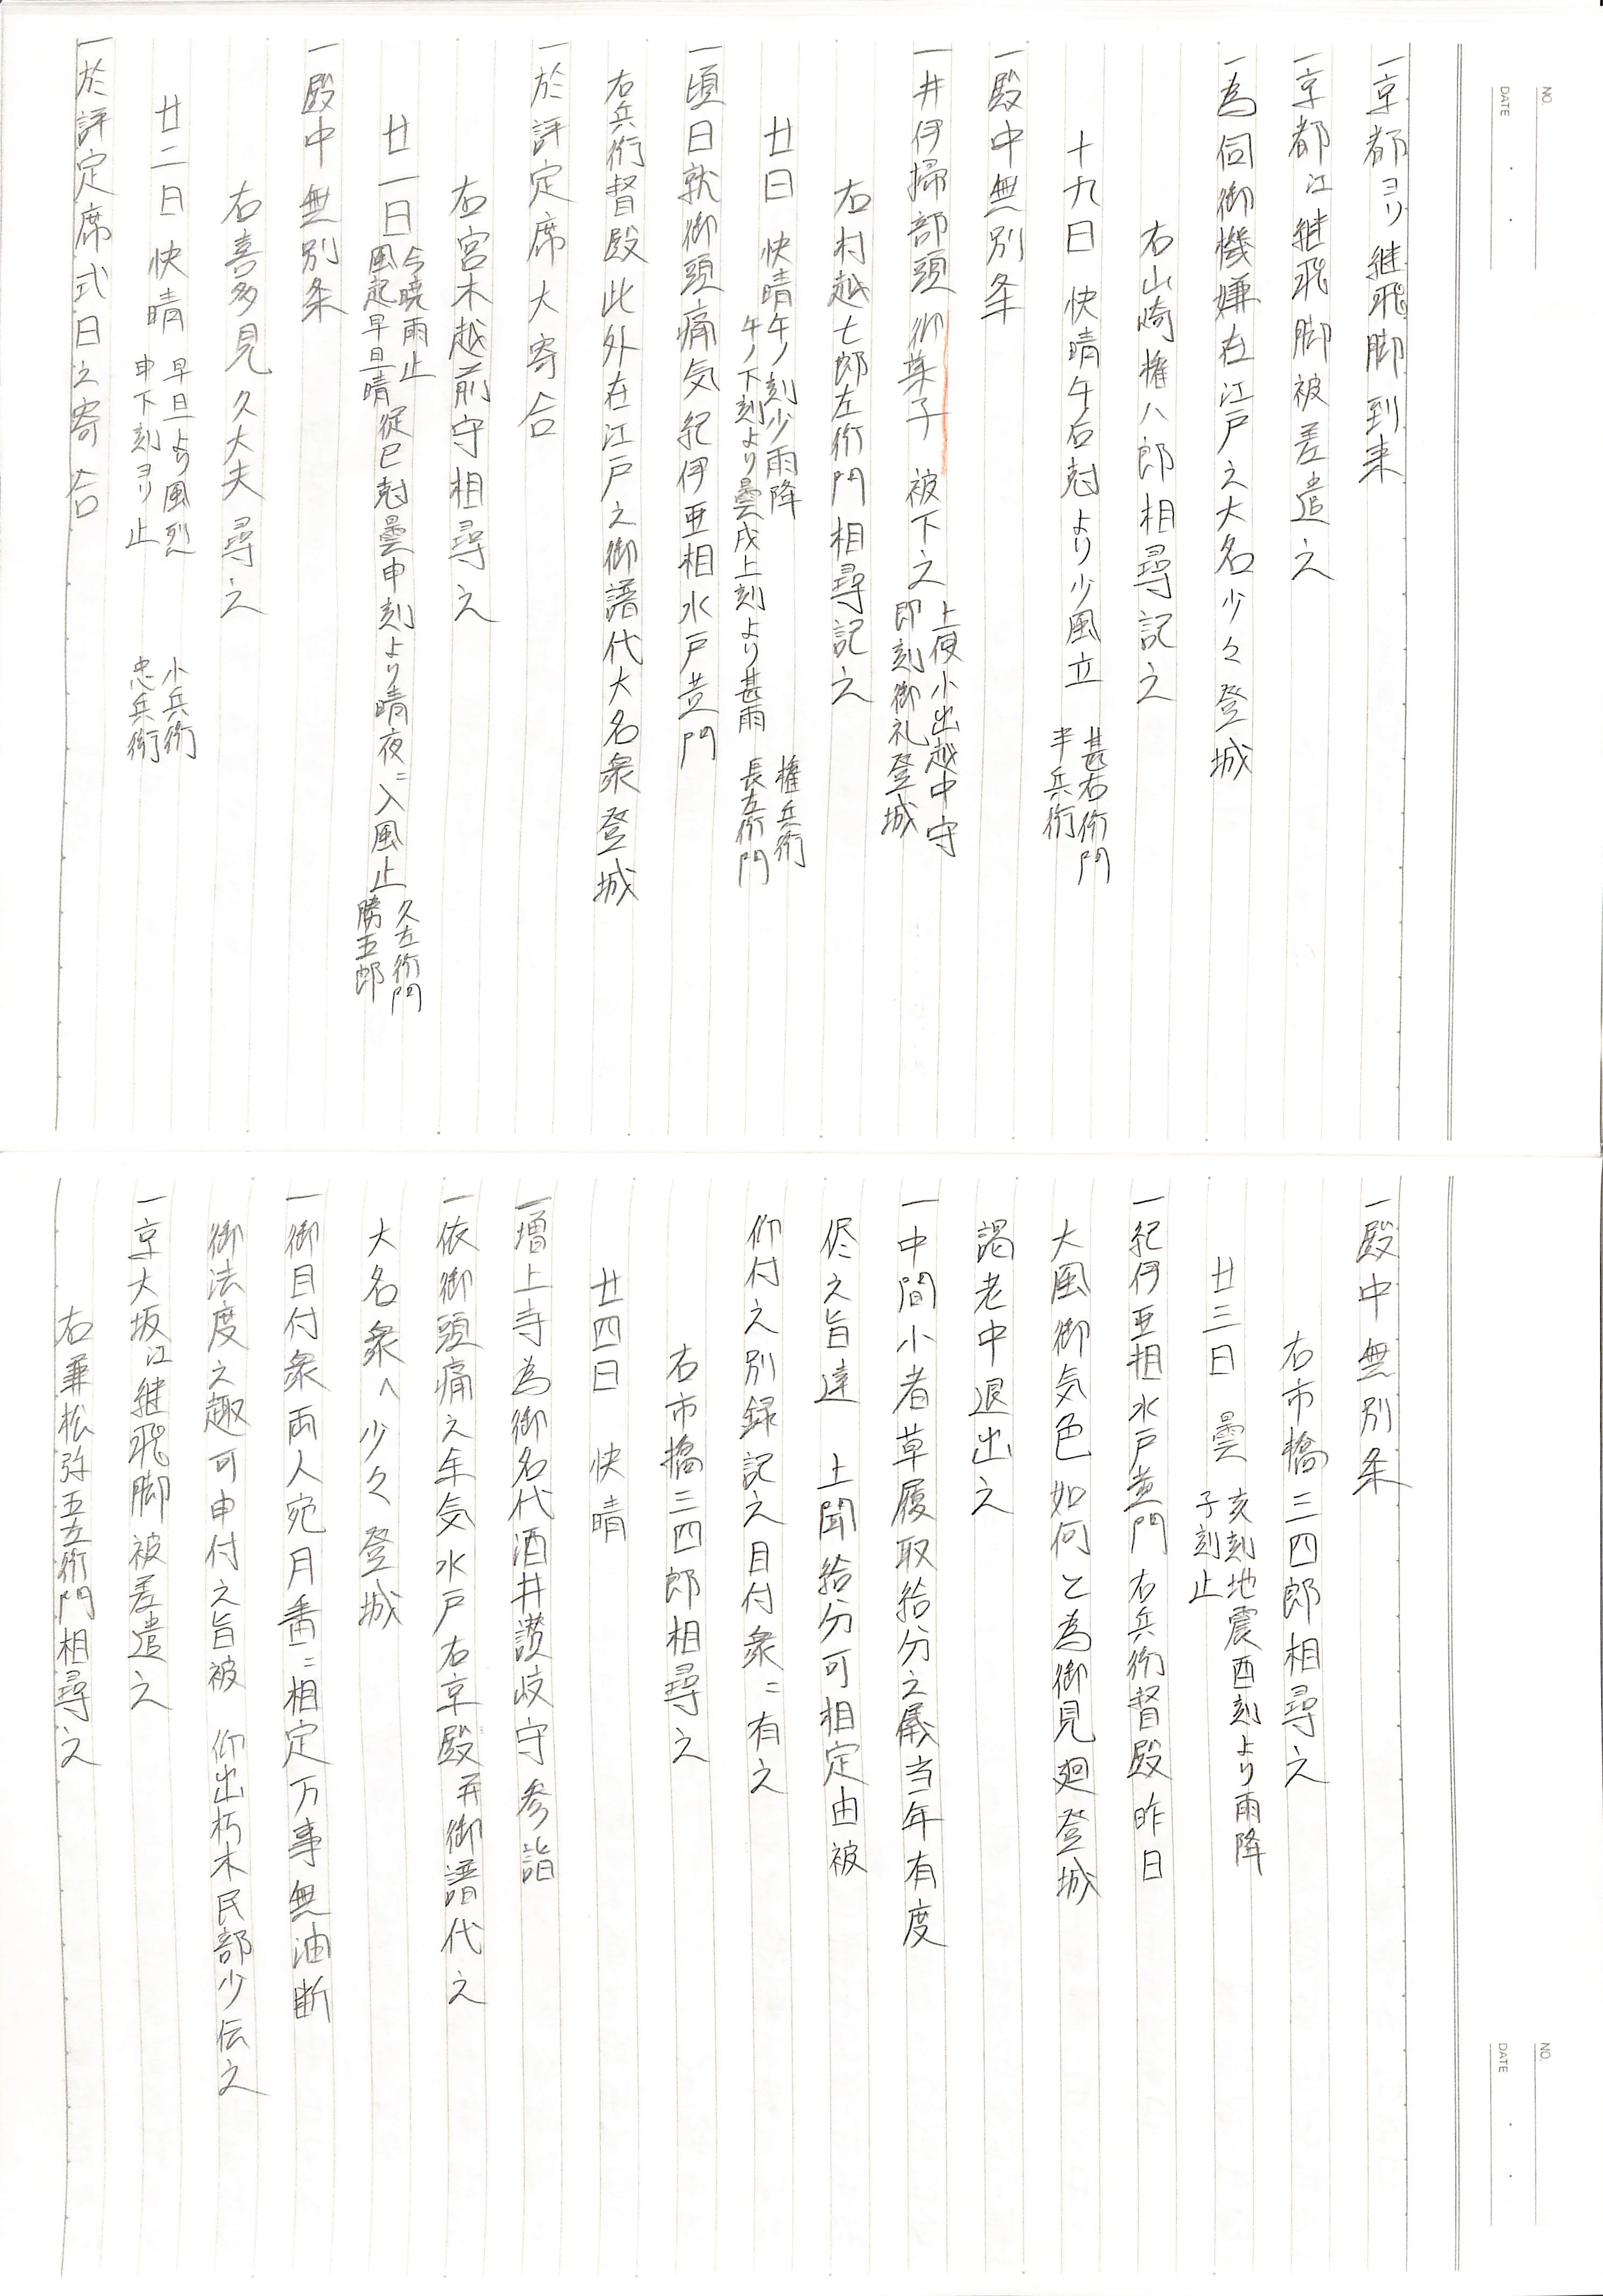 NO.
DATE
一京都ヨリ継飛脚到来
一京都江継飛脚被差遣之
一為伺御機嫌在江戸之大名少々登城
右山崎権八郎相尋記之
十九日 快晴午后尅より少風立 甚右衛門
半兵衛
一殿中無別条
一井伊掃部頭 御菓子 被下之 上使小出越中守
即刻御礼登城
右村越七郎左衛門相尋記之
廿日 快晴 午ノ刻少雨降
午ノ下刻より曇戌上刻より甚雨 権兵衛
長左衛門
一頃日就御頭痛気紀伊亜相水戸黄門
右兵衛督殿此外在江戸之御譜代大名衆登城
一於評定席大寄合
右宮木越前守相尋之
廿一日 今暁雨止
風起早旦晴 従巳尅曇申刻より晴夜ニ入風止 久左衛門
勝五郎
一殿中無別条
右喜多見久大夫尋之
廿二日 快晴 早旦より風烈
申下刻ヨリ止 小兵衛
忠兵衛
一於評定席式日之寄合
NO.
DATE
一殿中無別条
右市橋三四郎相尋之
廿三日 曇 亥刻地震酉刻より雨降
子刻止
一紀伊亜相水戸黄門右兵衛督殿昨日
大風御気色如何と為御見廻登城
謁老中退出之
一中間小者草履取給分之儀当年有度
侭之旨達 上聞給分可相定由被
仰付之別録記之目付衆ニ有之
右市橋三四郎相尋之
廿四日 快晴
一増上寺為御名代酒井讃岐守参詣
一依御頭痛之余気水戸右京殿并御譜代之
大名衆へ少々登城
一御目付衆両人宛月番ニ相定万事無油断
御法度之趣可申付之旨被 仰出朽木民部少伝之
一京大坂江継飛脚被差遣之
右兼松弥五左衛門相尋之